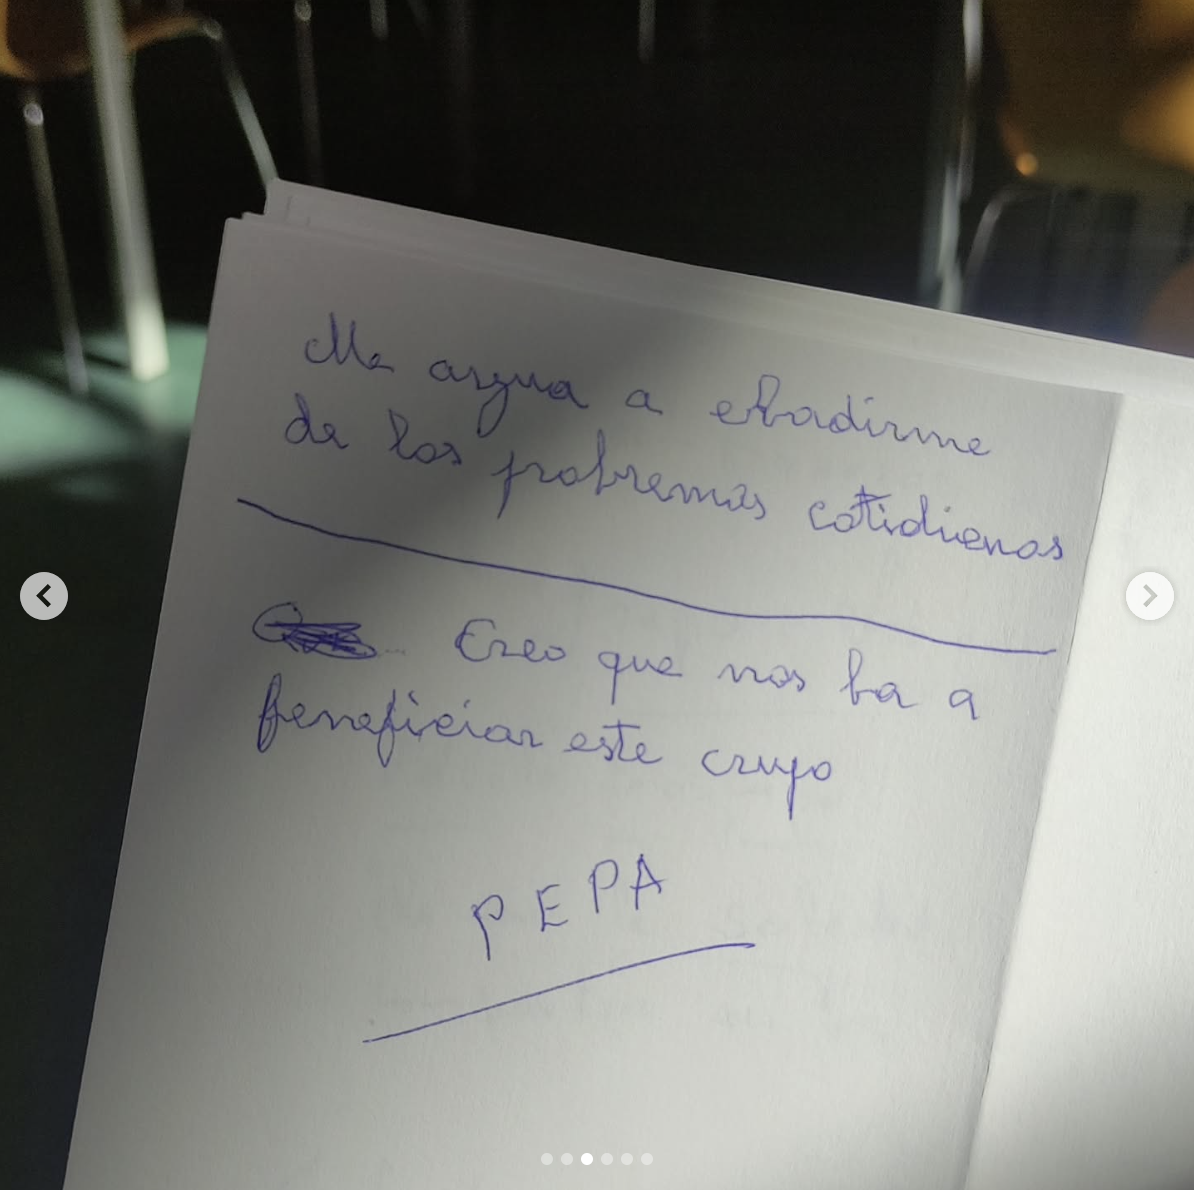 Me a a ebadirme
de los probremas cotidienos
Creo que nos ba a
beneficiar este crupo
PEPA